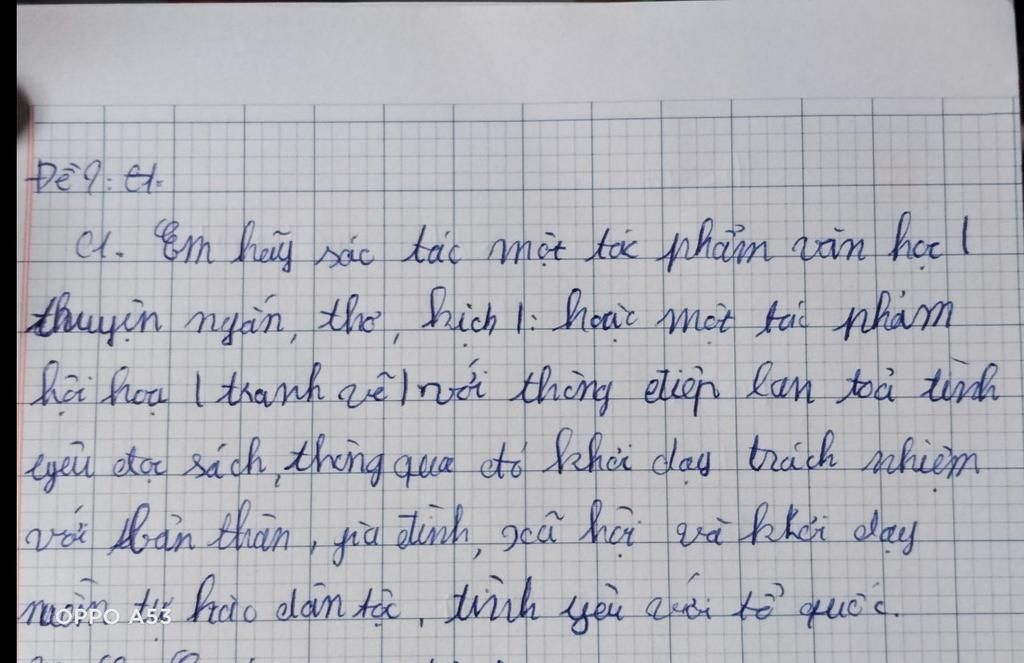 Đề 9: C1.
C1. Em hãy sác tác một tác phẩm văn học (
thuyện ngắn, thơ, kịch ): hoặc một tác phẩm
hội hoạ ( tranh vẽ ) với thông điệp lan toả tình
yêu đọc sách, thông qua đó khơi dạy trách nhiệm
với bản thân, gia đình, xã hội và khơi dạy
niềm tự hào dân tộc, tình yêu với tổ quốc.
OPPO A53